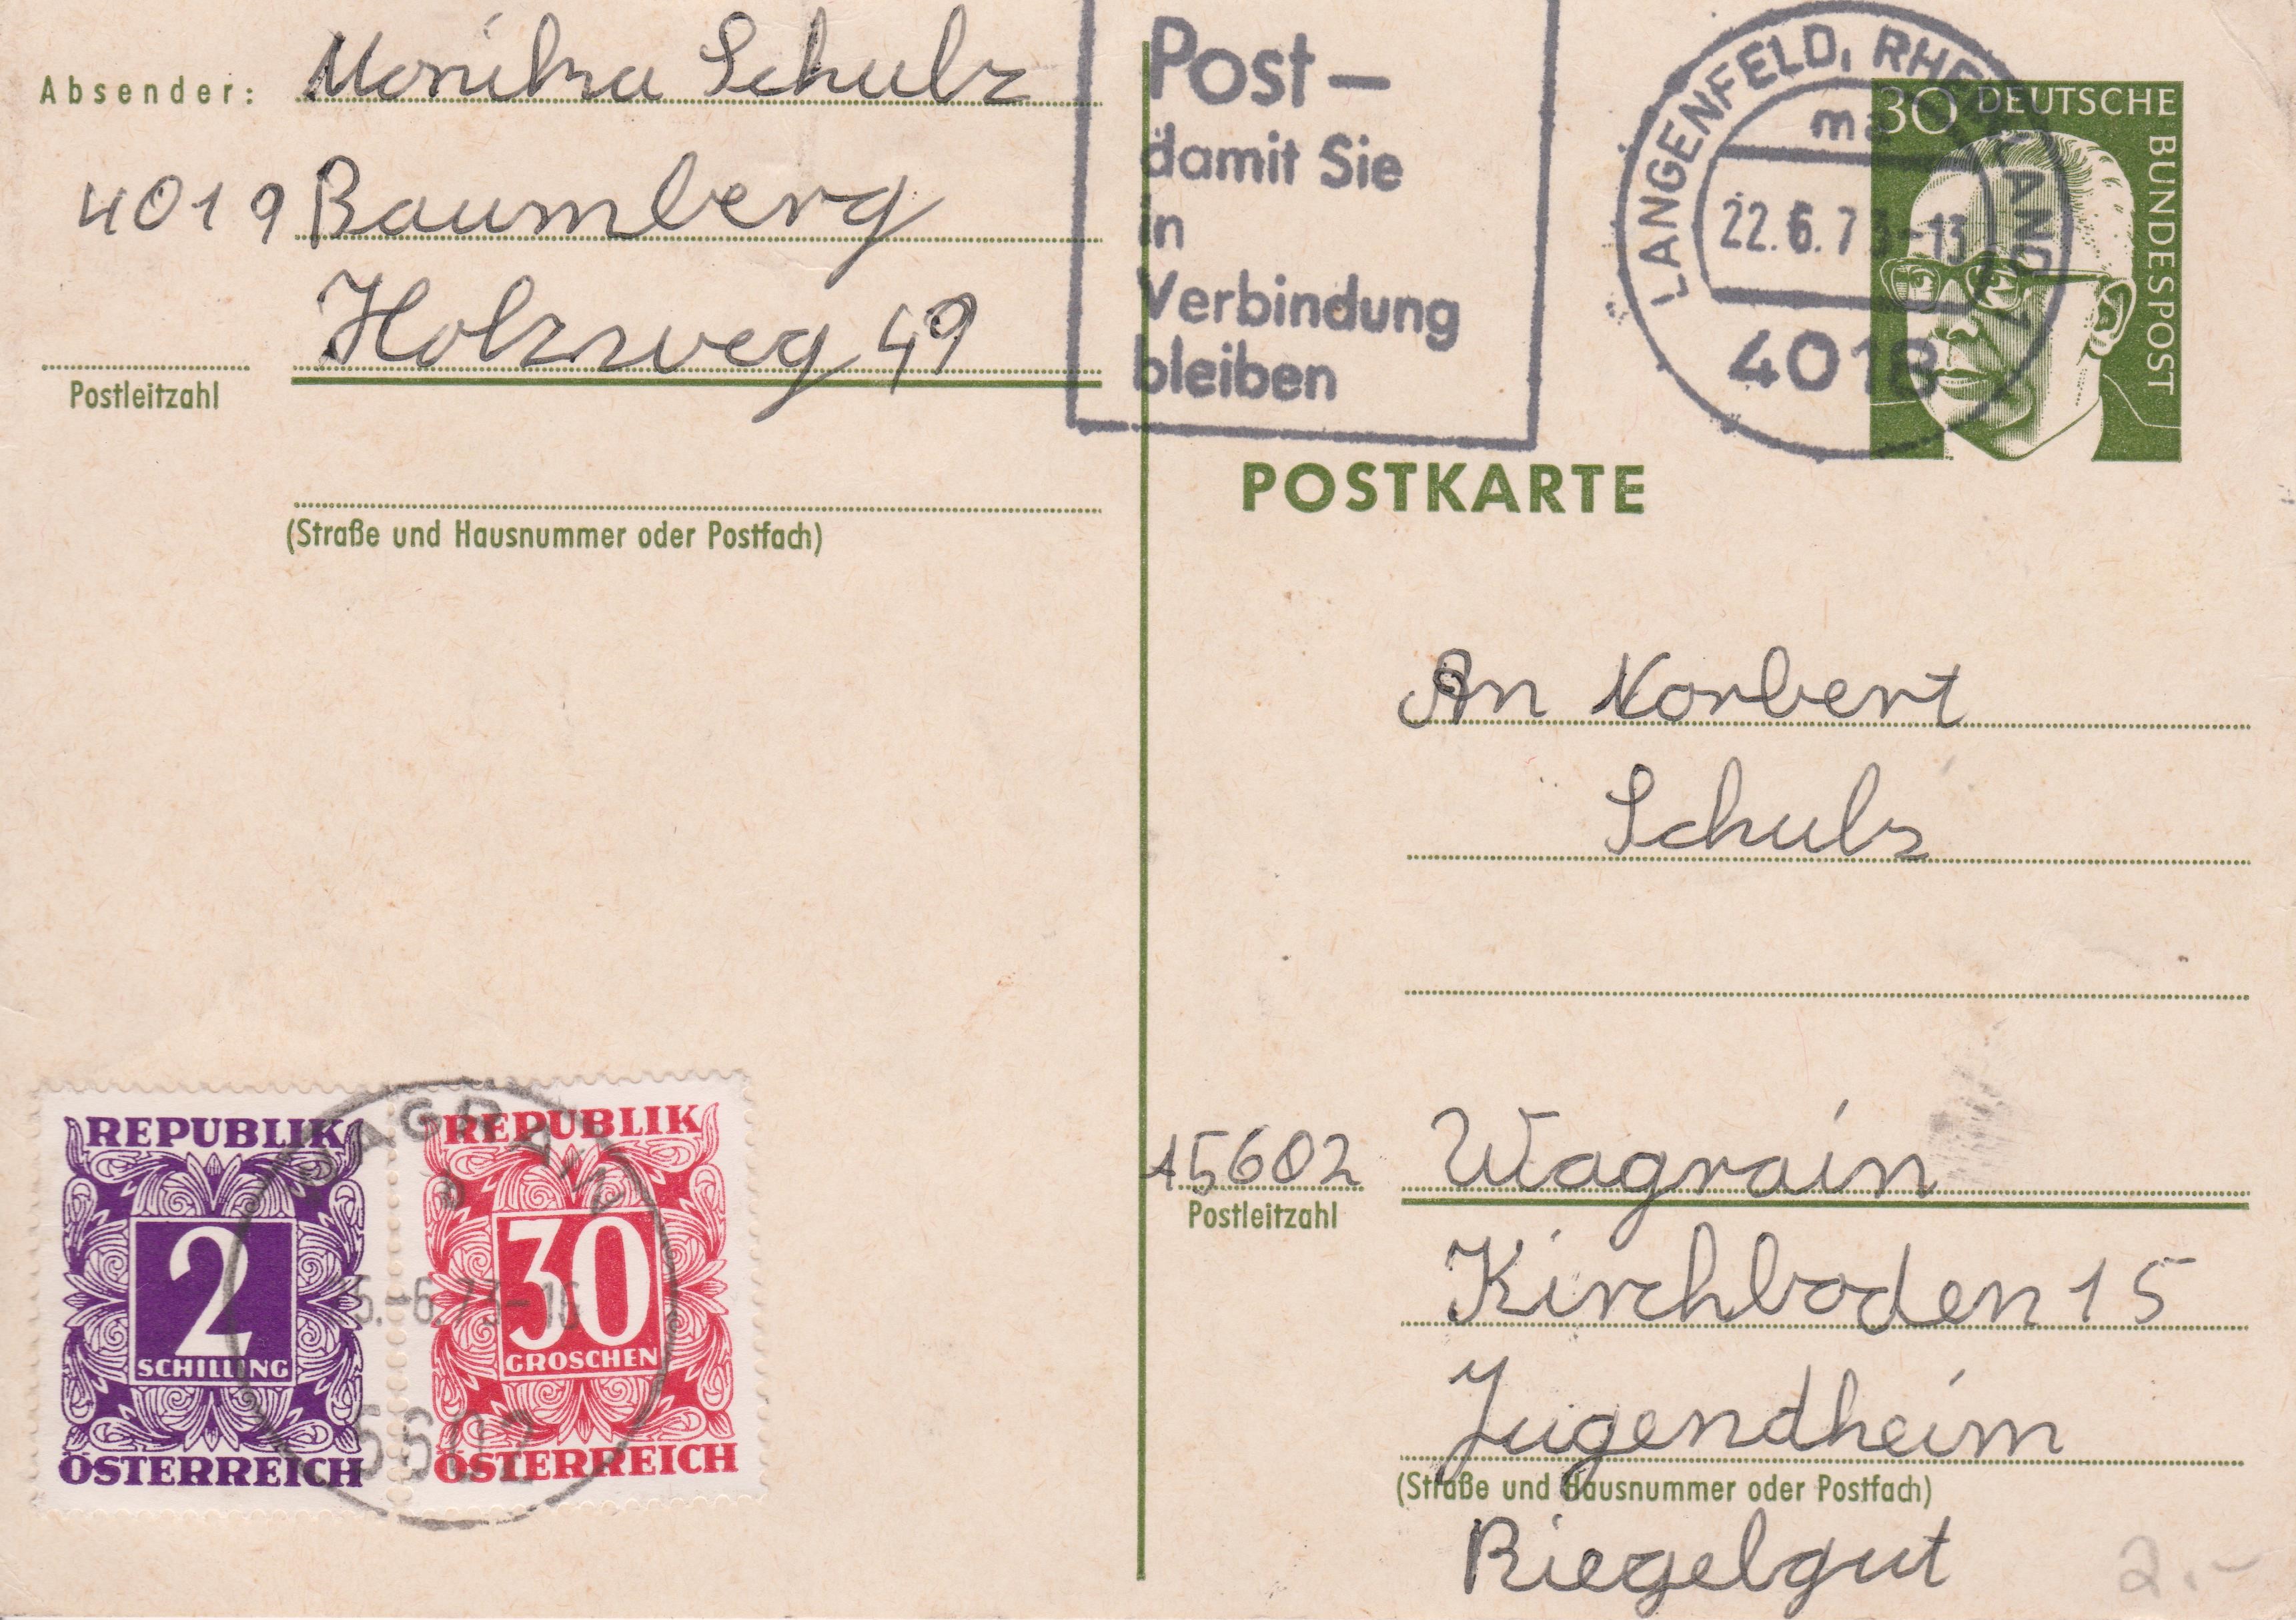 Absender: Monika Schulz
4019 Baumberg
Holzweg 49
Postleitzahl
(Straße und Hausnummer oder Postfach)
Post –
damit Sie
in
Verbindung
bleiben
LANGENFELD, RHEINLAND 1
ma
22.6.73-13
4018
30 DEUTSCHE
BUNDESPOST
POSTKARTE
An Norbert
Schulz
A5602 Wagrain
Postleitzahl
Kirchboden 15
Jugendheim
(Straße und Hausnummer oder Postfach)
Riegelgut
2.-
REPUBLIK
2
SCHILLING
ÖSTERREICH
REPUBLIK
30
GROSCHEN
ÖSTERREICH
WAGRAIN
-6.73-16
5602